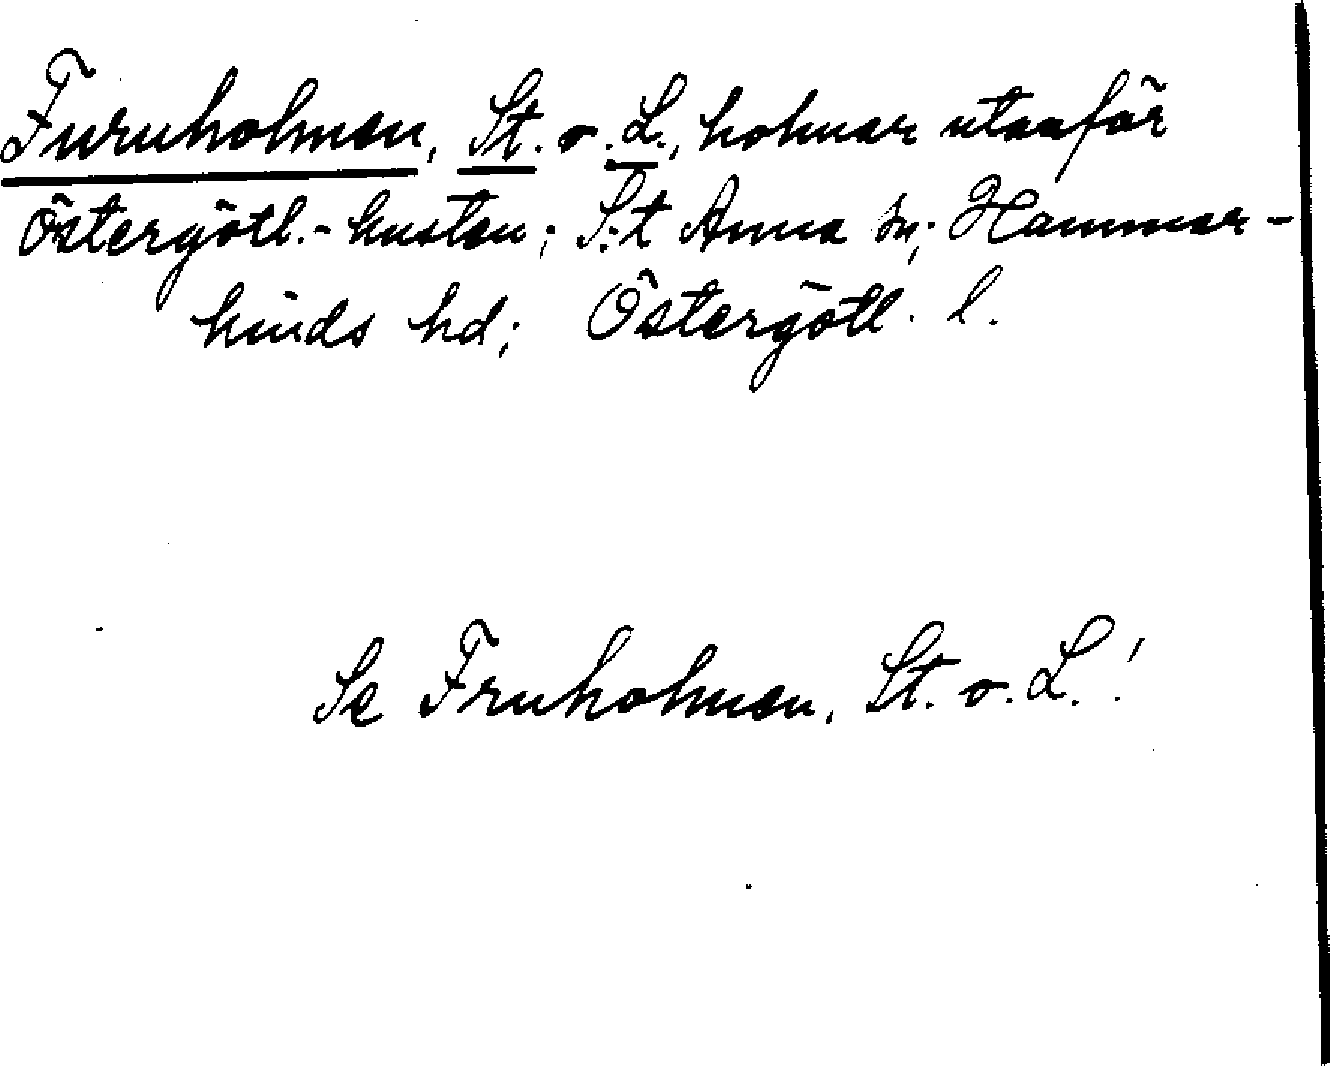 Furuholmen, St. o. L., holmar utanför
Östergötl.-kusten; S:t Anna sn; Hammar-
kinds hd; Östergötl. l.
Se Fruholmen, St. o. L.!